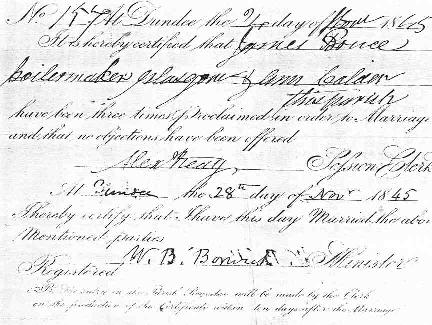 No 157 At Dundee the 2 day of Nov 1845
It is hereby certified that James Bruce
boilermaker Glasgow & Ann Calder
this parish
have been three times Proclaimed in order to Marriage
and that no objections have been offered
Session Clerk
At Dundee the 28th day of Novr 1845
I hereby certify that I have this day Married the abov
Mentioned parties
W. B. Borwick Minister
Registered
in the Parish Register will be made by the Clerk
on the production of the Certificate within ten days after the Marriage